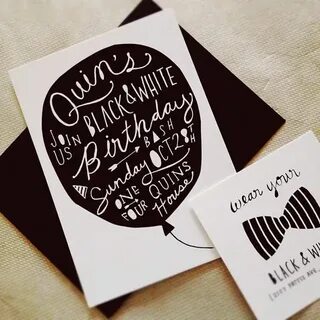 Quin's
BLACK & WHITE
JOIN US
Birthday
BASH
Sunday OCT 28TH
ONE FOUR
QUINS
House
wear your
BLACK & WHIT